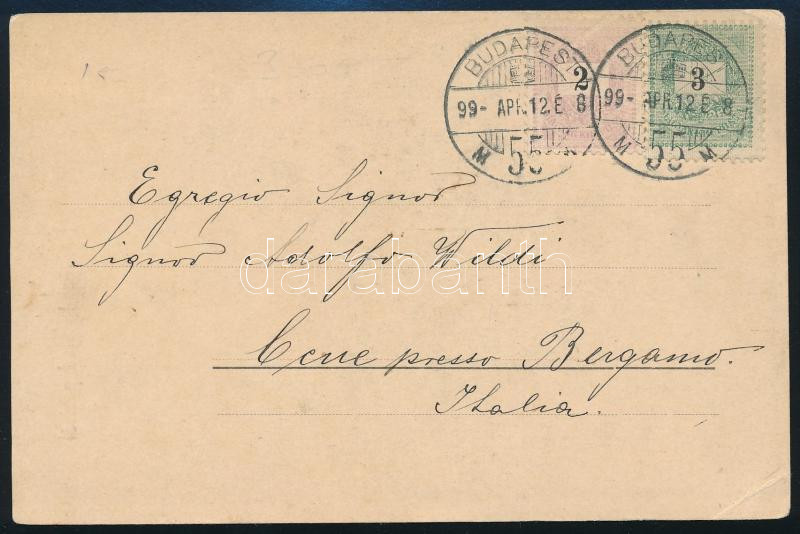 BUDAPEST
99- APR.12.E 8
M 55
2
BUDAPEST
99- APR.12.E 8
M 55 M
3
Egregio Signor
Signor Adolfo Wildi
darabanth
Cene presso Bergamo.
Italia.